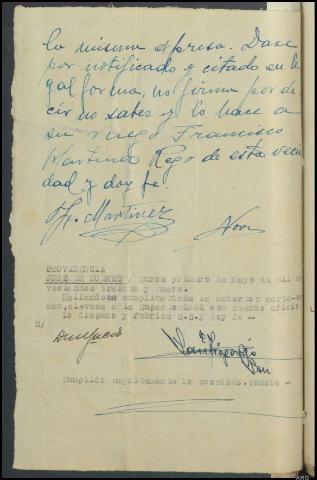 la misma expresa. Dase
por notificado y citado en le
gal forma, no firma por de
cir no saber y lo hace a
su ruego Francisco
Martinez Rego de esta vecin
dad y doy fe.
Martinez
PROVIDENCIA
JUEZ / Muros primero de Mayo de mil no
vecientos treinta y nueve.
Hallandose cumplimentada la anterior carta-or
den, elevese a la Superioridad con atento oficio
Lo dispuso y rubrica S.S. y doy fe =
E/
Cumplido seguidamente lo acordado. Conste =